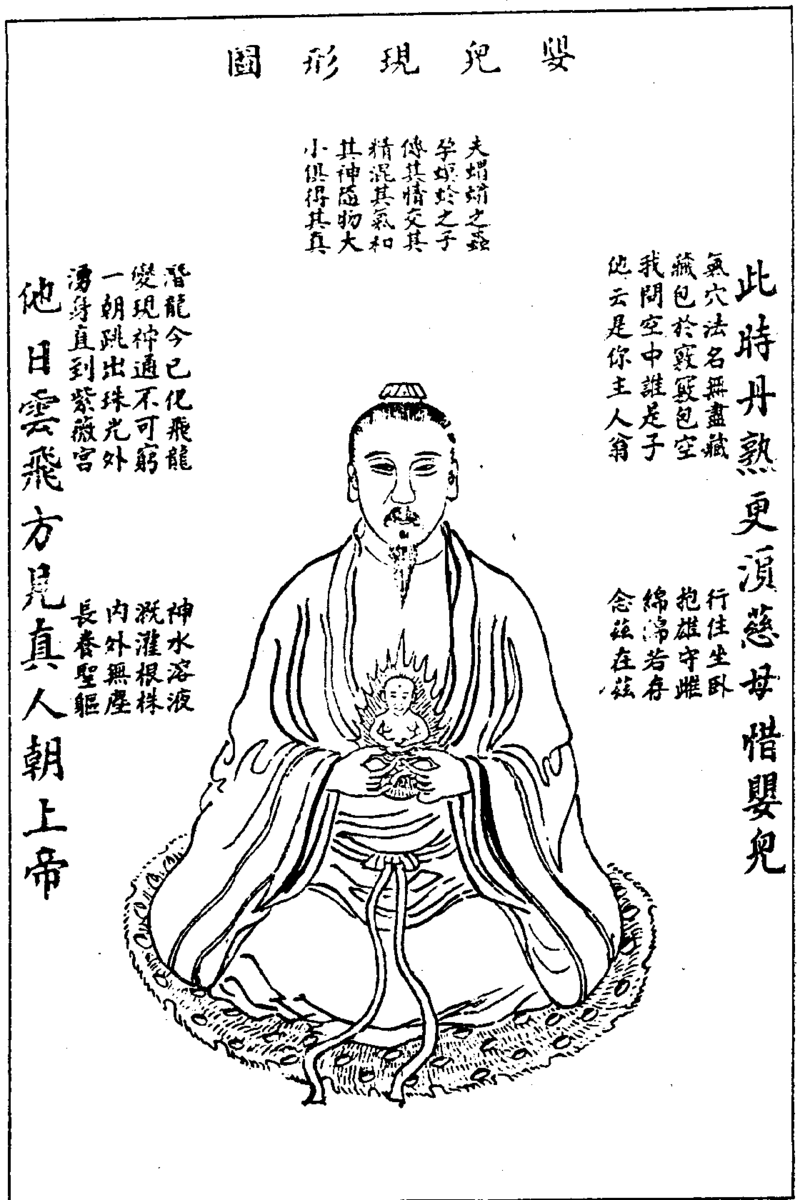 嬰兒現形圖
夫蜾蠃之蟲
孕螟蛉之子
傳其情交其
精混其氣和
其神隨物大
小俱得其真
此時丹熟更須慈母惜嬰兒
氣穴法名無盡藏
藏包於竅竅包空
我問空中誰是子
他云是你主人翁
行住坐臥
抱雄守雌
綿綿若存
念茲在茲
潛龍今已化飛龍
變現神通不可窮
一朝跳出珠光外
湧身直到紫薇宮
神水溶液
溉灌根株
內外無塵
長養聖軀
他日雲飛方見真人朝上帝